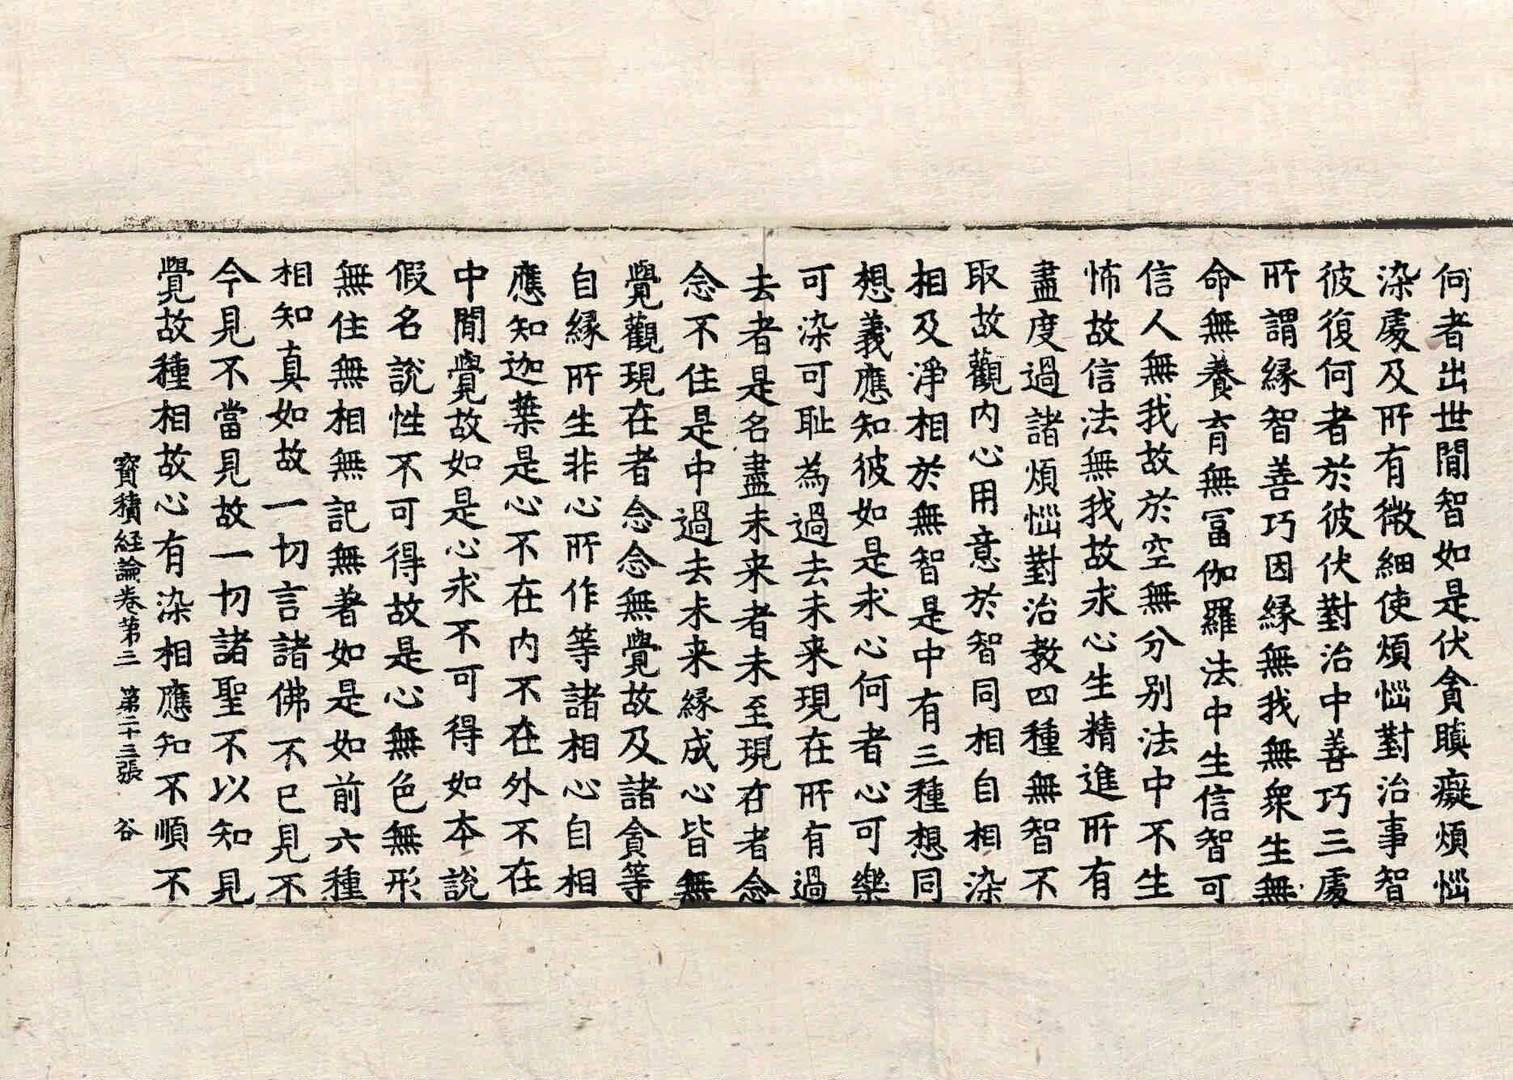 何者出世間智如是伏貪瞋癡煩惱
染處及所有微細使煩惱對治事智
彼復何者於彼伏對治中善巧三處
所謂緣智善巧因緣無我無衆生無
命無養育無冨伽羅法中生信智可
信人無我故於空無分別法中不生
怖故信法無我故求心生精進所有
盡度過諸煩惱對治教四種無智不
取故觀内心用意於智同相自相染
相及淨相於無智是中有三種想同
想義應知彼如是求心何者心可樂
可染可耻為過去未来現在所有過
去者是名盡未来者未至現在者念
念不住是中過去未来緣成心皆無
覺觀現在者念念無覺故及諸貪等
自緣所生非心所作等諸相心自相
應知迦葉是心不在内不在外不在
中間覺故如是心求不可得如本說
假名說性不可得故是心無色無形
無住無相無記無著如是如前六種
相知真如故一切言諸佛不已見不
今見不當見故一切諸聖不以知見
覺故種相故心有染相應知不順不
寳積経論卷第三　第二十三張　谷